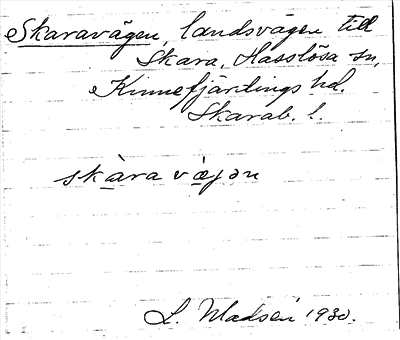 Skaravägen, landsvägen till
Skara, Hasslösa sn,
Kinnefjärdings hd.
Skarab. l.
skàra væjən
L. Madsén 1930.